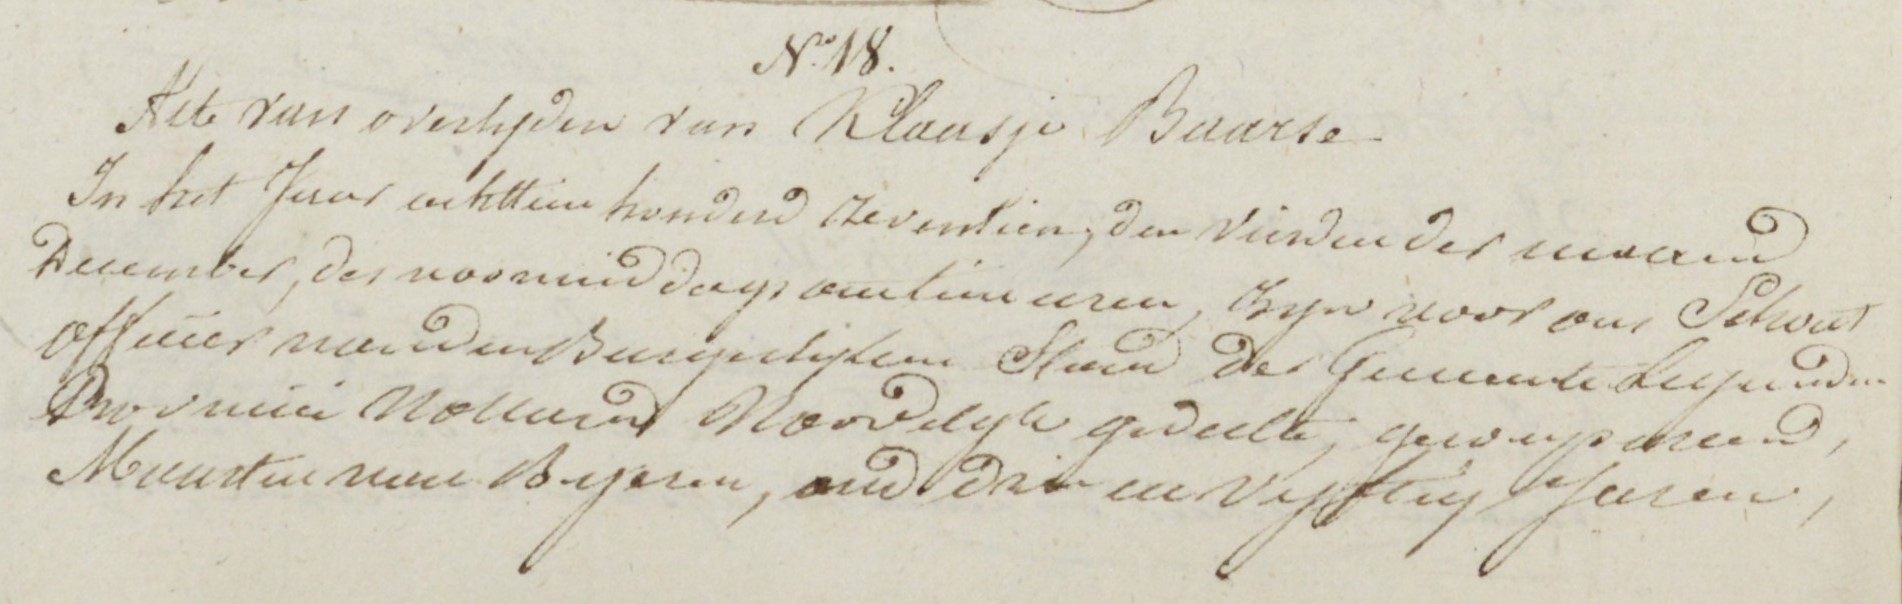 No. 18.
Akte van overlijden van Klaasje Baarse
In het Jaar achttien honderd zeventien, den vierden der maand
December, des voormiddags om tien uren, zijn voor ons Schout
officier van den Burgerlijken Stand der Gemeente
Provincie Holland Noordelijk gedeelte, gecompareerd,
Maarten van Byeren, oud drie en vijftig Jaren,